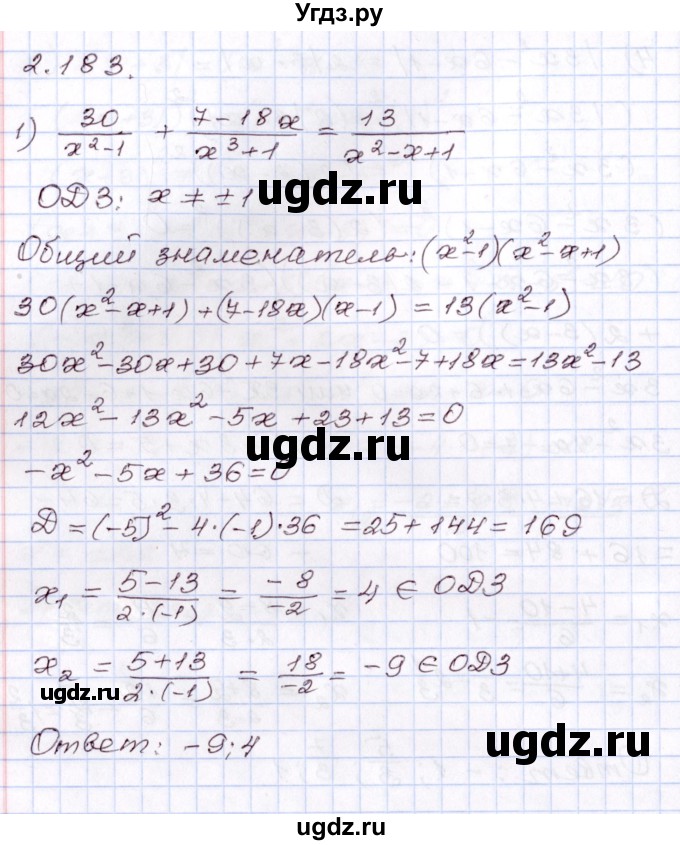 Угдз.ру
2.183.
1) 30/(x²-1) + (7-18x)/(x³+1) = 13/(x²-x+1)
ugdz.ru
ОДЗ: x ≠ ±1
Общий знаменатель: (x²-1)(x²-x+1)
30(x²-x+1)+(7-18x)(x-1) = 13(x²-1)
ugdz.ru
30x²-30x+30+7x-18x²-7+18x=13x²-13
12x²-13x²-5x+23+13=0
ugdz.ru
-x²-5x+36=0
D=(-5)²-4·(-1)·36 =25+144=169
x₁ = (5-13)/(2·(-1)) = -8/-2 = 4 ∈ ОДЗ
ugdz.ru
x₂ = (5+13)/(2·(-1)) = 18/-2 = -9 ∈ ОДЗ
ugdz.ru
Ответ: -9; 4
ugdz.ru
ugdz.ru